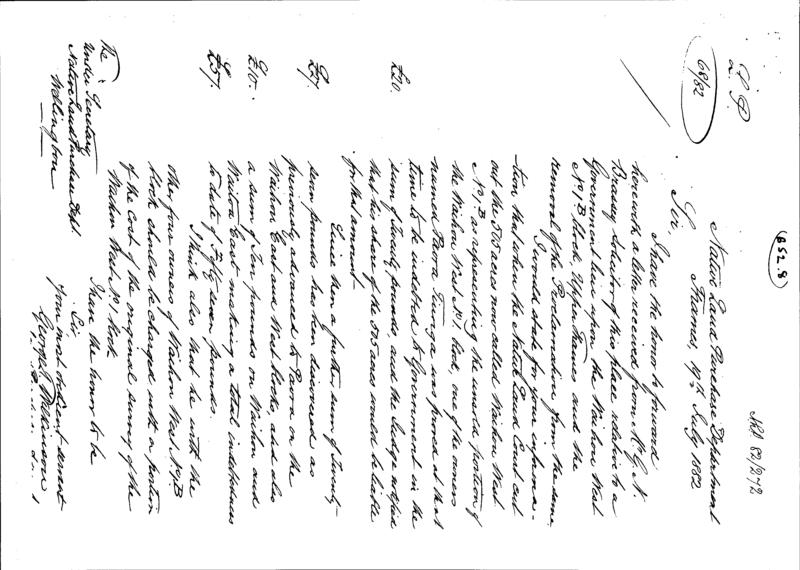 NLP 82/272
(B52.8)
L. P.
a.
68/82
Native Land Purchase Department
Thames, 4th July 1882
Sir,
I have the honor to forward
herewith a letter received from Mr. G. N.
Brassey Solicitor of this place relative to a
Government lien upon the Waihou West
No. 1 B Block, Upper Thames and the
removal of the Proclamation from the same.
I would state for your informa-
-tion that when the Native Land Court cut
out the 505 acres now called Waihou West
No. 1 B as representing the unsold portion of
the Waihou West No. 1. Block, one of the owners
named was found at that
time to be indebted to Government in the
£20. sum of Twenty pounds, and the Judge notified
that his share of the 505 acres would be liable
for that amount.
Since then a further sum of Twenty-
£27. seven pounds has been discovered as
previously advanced to on the
Waihou East and West Blocks, and also
£10. a sum of Ten pounds on Waihou and
Waitoa East making a total indebtedness
£57. to date of Fifty seven pounds.
I think also that he with the
other four owners of Waihou West No. 1 B
Block should be charged with a portion
of the cost of the original survey of the
Waihou West No. 1 Block.
I have the honor to be
Sir
Your most obedient servant
George Wilkinson
The
Under Secretary
Native Land Purchase Dept
Wellington